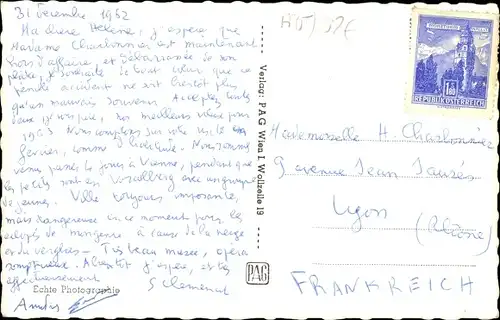 31 Décembre 1962
Ma chère Hélène, j'espère que
Madame Charbonnier est maintenant
hors d'affaire, et débarrassée de son
plâtre, je souhaite de tout cœur que ce
pénible accident ne soit bientôt plus
qu'un mauvais souvenir. Acceptez toutes
deux, je vous prie, nos meilleurs vœux pour
1963. Nous comptons sur votre visite le
février, comme d'habitude. Nous sommes
venus passer les jours à Vienne, pendant que
les petits sont en Vorarlberg avec un groupe
de jeunes. Ville toujours imposante,
mais dangereuse en ce moment pour les
de à cause de la neige
et du verglas. Très beau musée, opéra
somptueux. A bientôt j'espère, et très
affectueusement
S Clemencet
Echte Photographie
Verlag: PAG Wien I. Wollzeile 19
PAG
1.50
REPUBLIK ÖSTERREICH
Mademoiselle H. Charbonnier
9 avenue Jean Jaurès
Lyon
(Rhône)
FRANKREICH